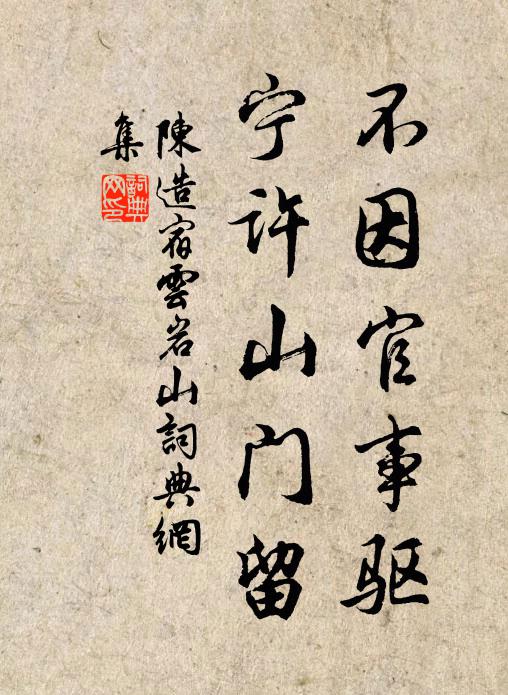 不因官事驱
宁许山门留
陳造宿雲岩山詞典網
集
詞典
网印